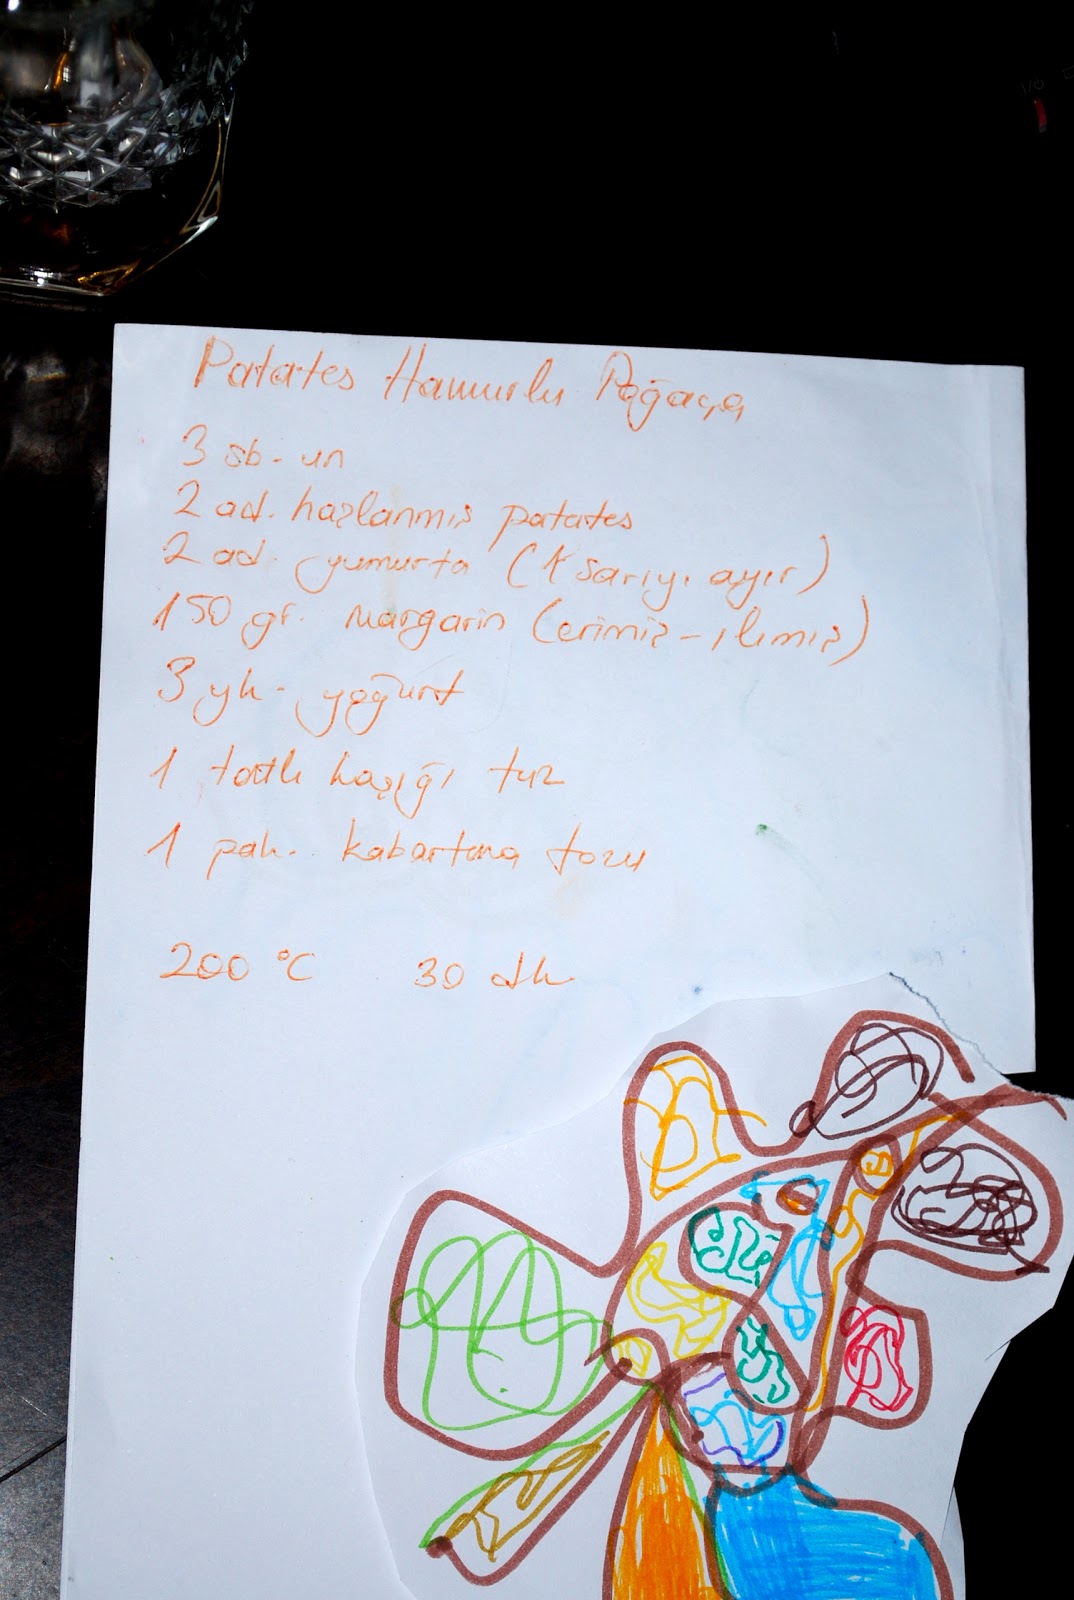 Patates Hamurlu Poğaça
3 sb. un
2 ad. haşlanmış patates
2 ad. yumurta (1 sarıyı ayır)
150 gr. margarin (erimiş-ılımış)
3 yk. yoğurt
1 tatlı kaşığı tuz
1 pak. kabartma tozu
200 °C 30 dk